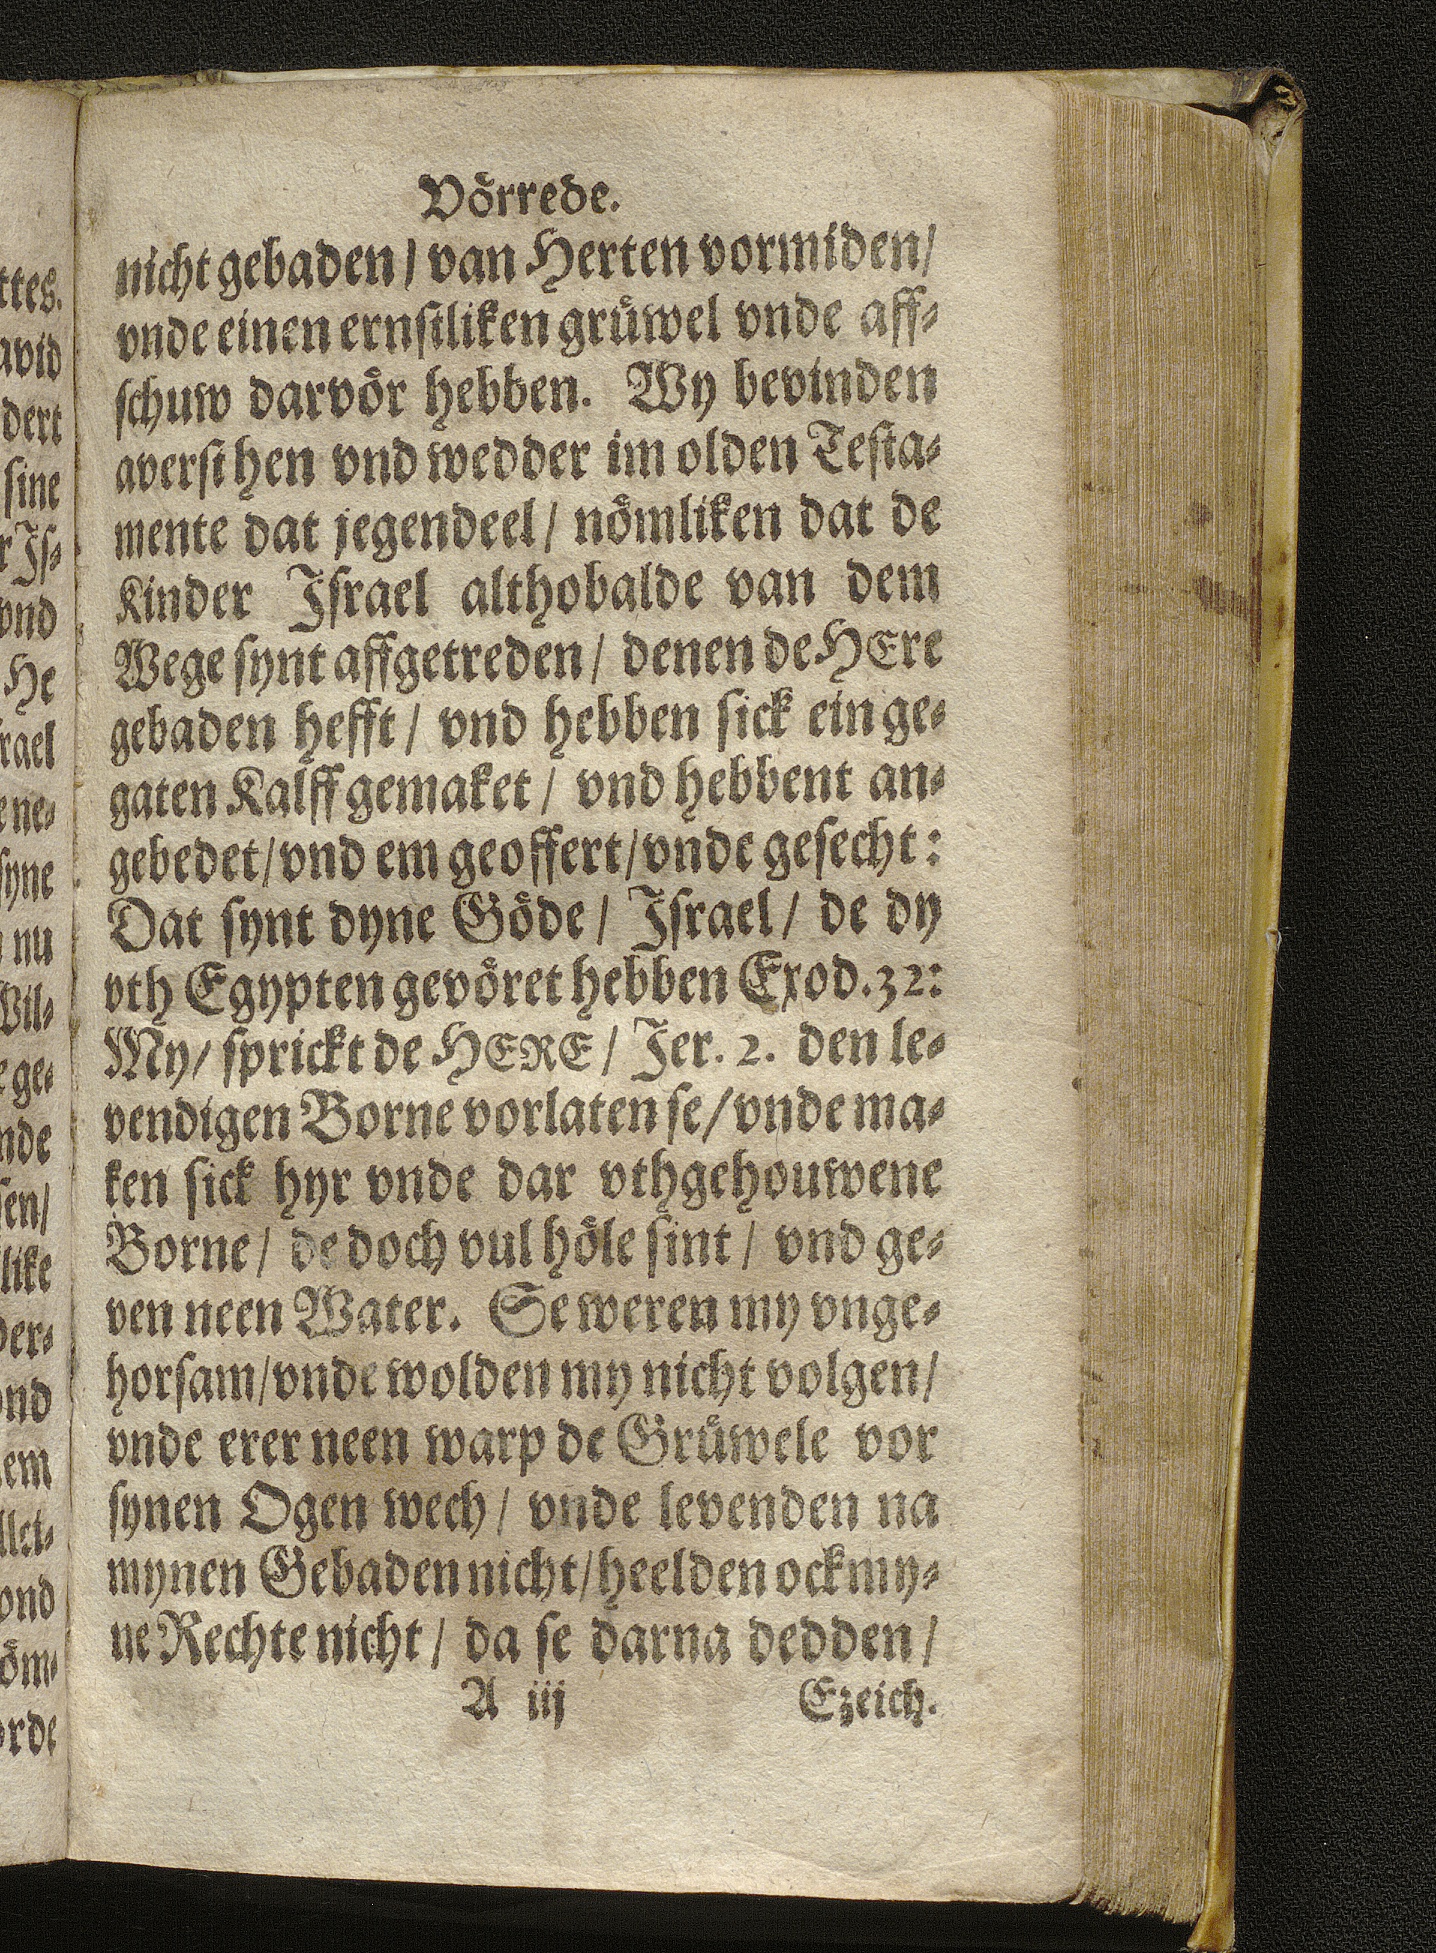 Vörrede.
nicht gebaden / van Herten vormiden /
vnde einen ernstliken grüwel vnde aff-
schuw darvör hebben. Wy bevinden
averst hen vnd wedder im olden Testa-
mente dat jegendeel / nömliken dat de
Kinder Israel althobalde van dem
Wege synt affgetreden / denen de HEre
gebaden hefft / vnd hebben sick ein ge-
gaten Kalff gemaket / vnd hebbent an-
gebedet / vnd em geoffert / vnde gesecht:
Dat synt dyne Göde / Israel / de dy
vth Egypten gevöret hebben Exod. 32:
My / sprickt de HERE / Jer. 2. den le-
vendigen Borne vorlaten se / vnde ma-
ken sick hyr vnde dar vthgehouwene
Borne / de doch vul höle sint / vnd ge-
ven neen Water. Se weren my vnge-
horsam / vnde wolden my nicht volgen /
vnde erer neen warp de Grüwele vor
synen Ogen wech / vnde levenden na
mynen Gebaden nicht / heelden ock my-
ne Rechte nicht / da se darna dedden /
A iij Ezeich.